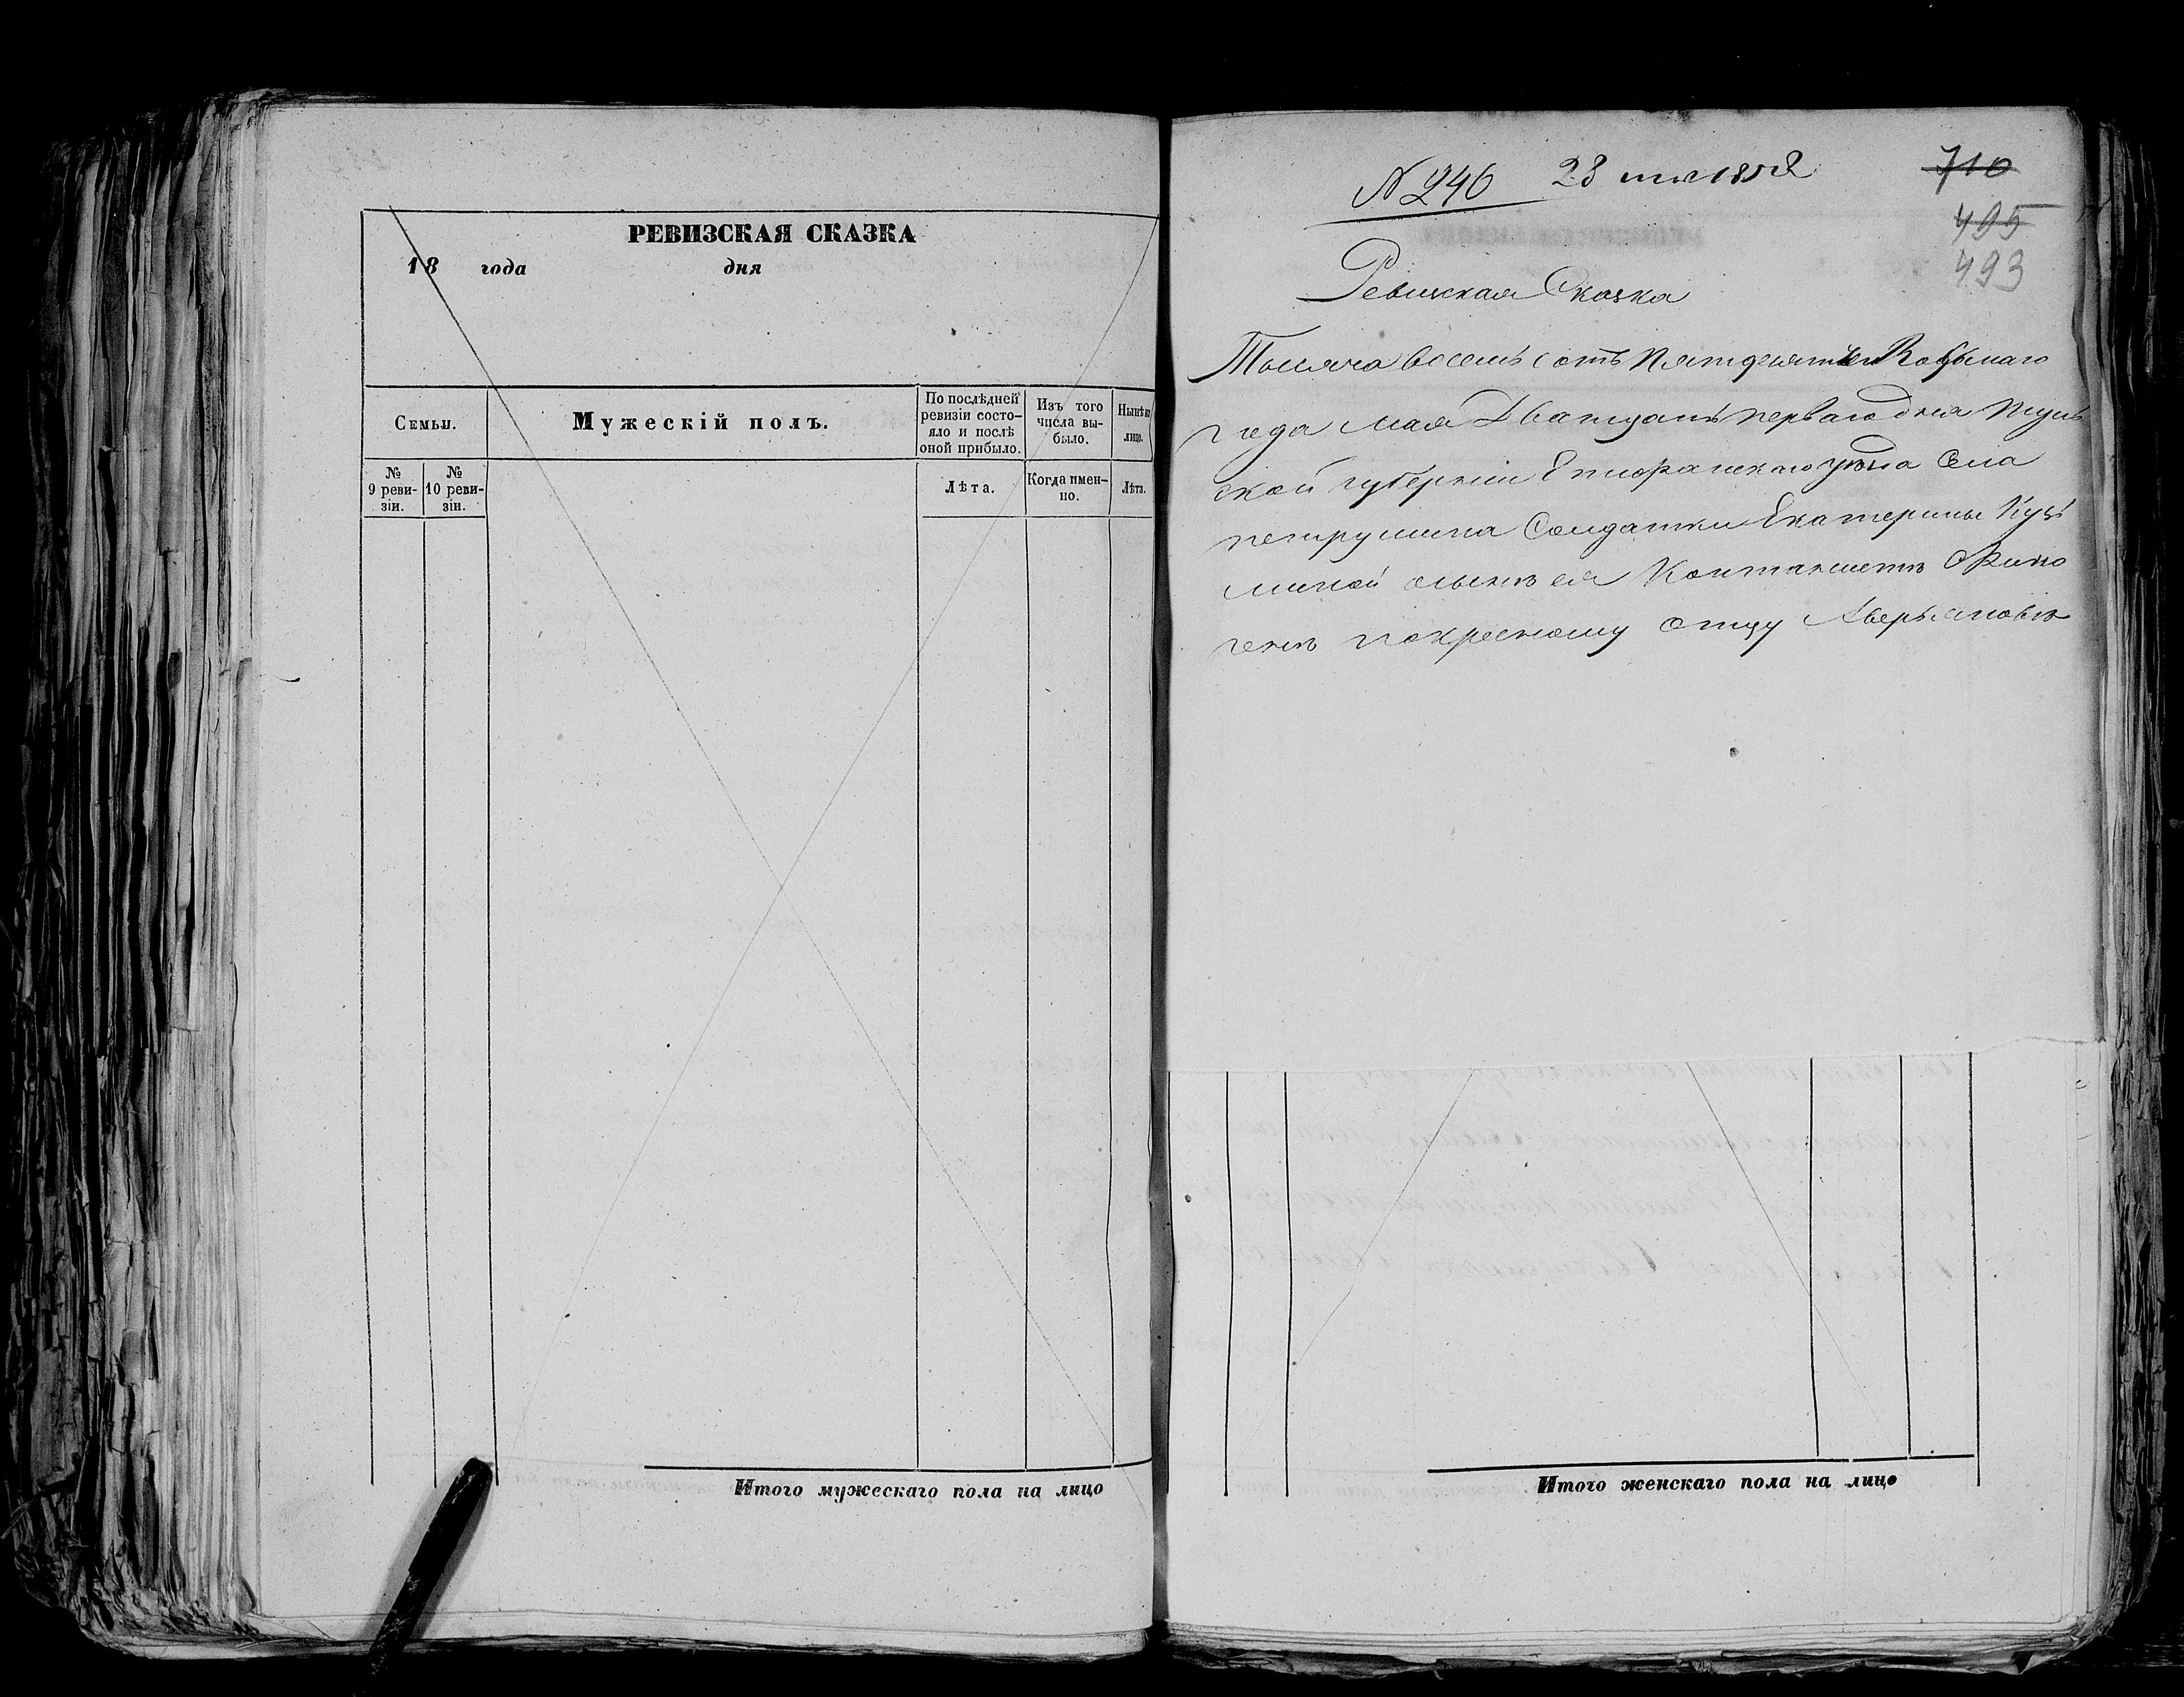 РЕВИЗСКАЯ СКАЗКА
18 года дня
Семьи.
Мужескій полъ.
По послѣдней ревизіи состо-
яло и послѣ
оной прибыло.
Изъ того
числа вы-
было.
Нынѣ на
лицо.
№
9 реви-
зіи.
№
10 реви-
зіи.
Лѣта.
Когда имен-
но.
Лѣта.
Итого мужескаго пола на лицо
№ 246 23 мая 1858
710
495
493
Ревизская Сказка
Тысяча восемь сотъ пятдесятъ Восьмаго
года мая Дватцать перваго дня Туль
ской губерніи Епифанскаго уѣзда Села
петрушина Солдатки Екатерины Кузь
миной осынѣ ея
покресному отцу Аверьяновѣ
Итого женскаго пола на лицо